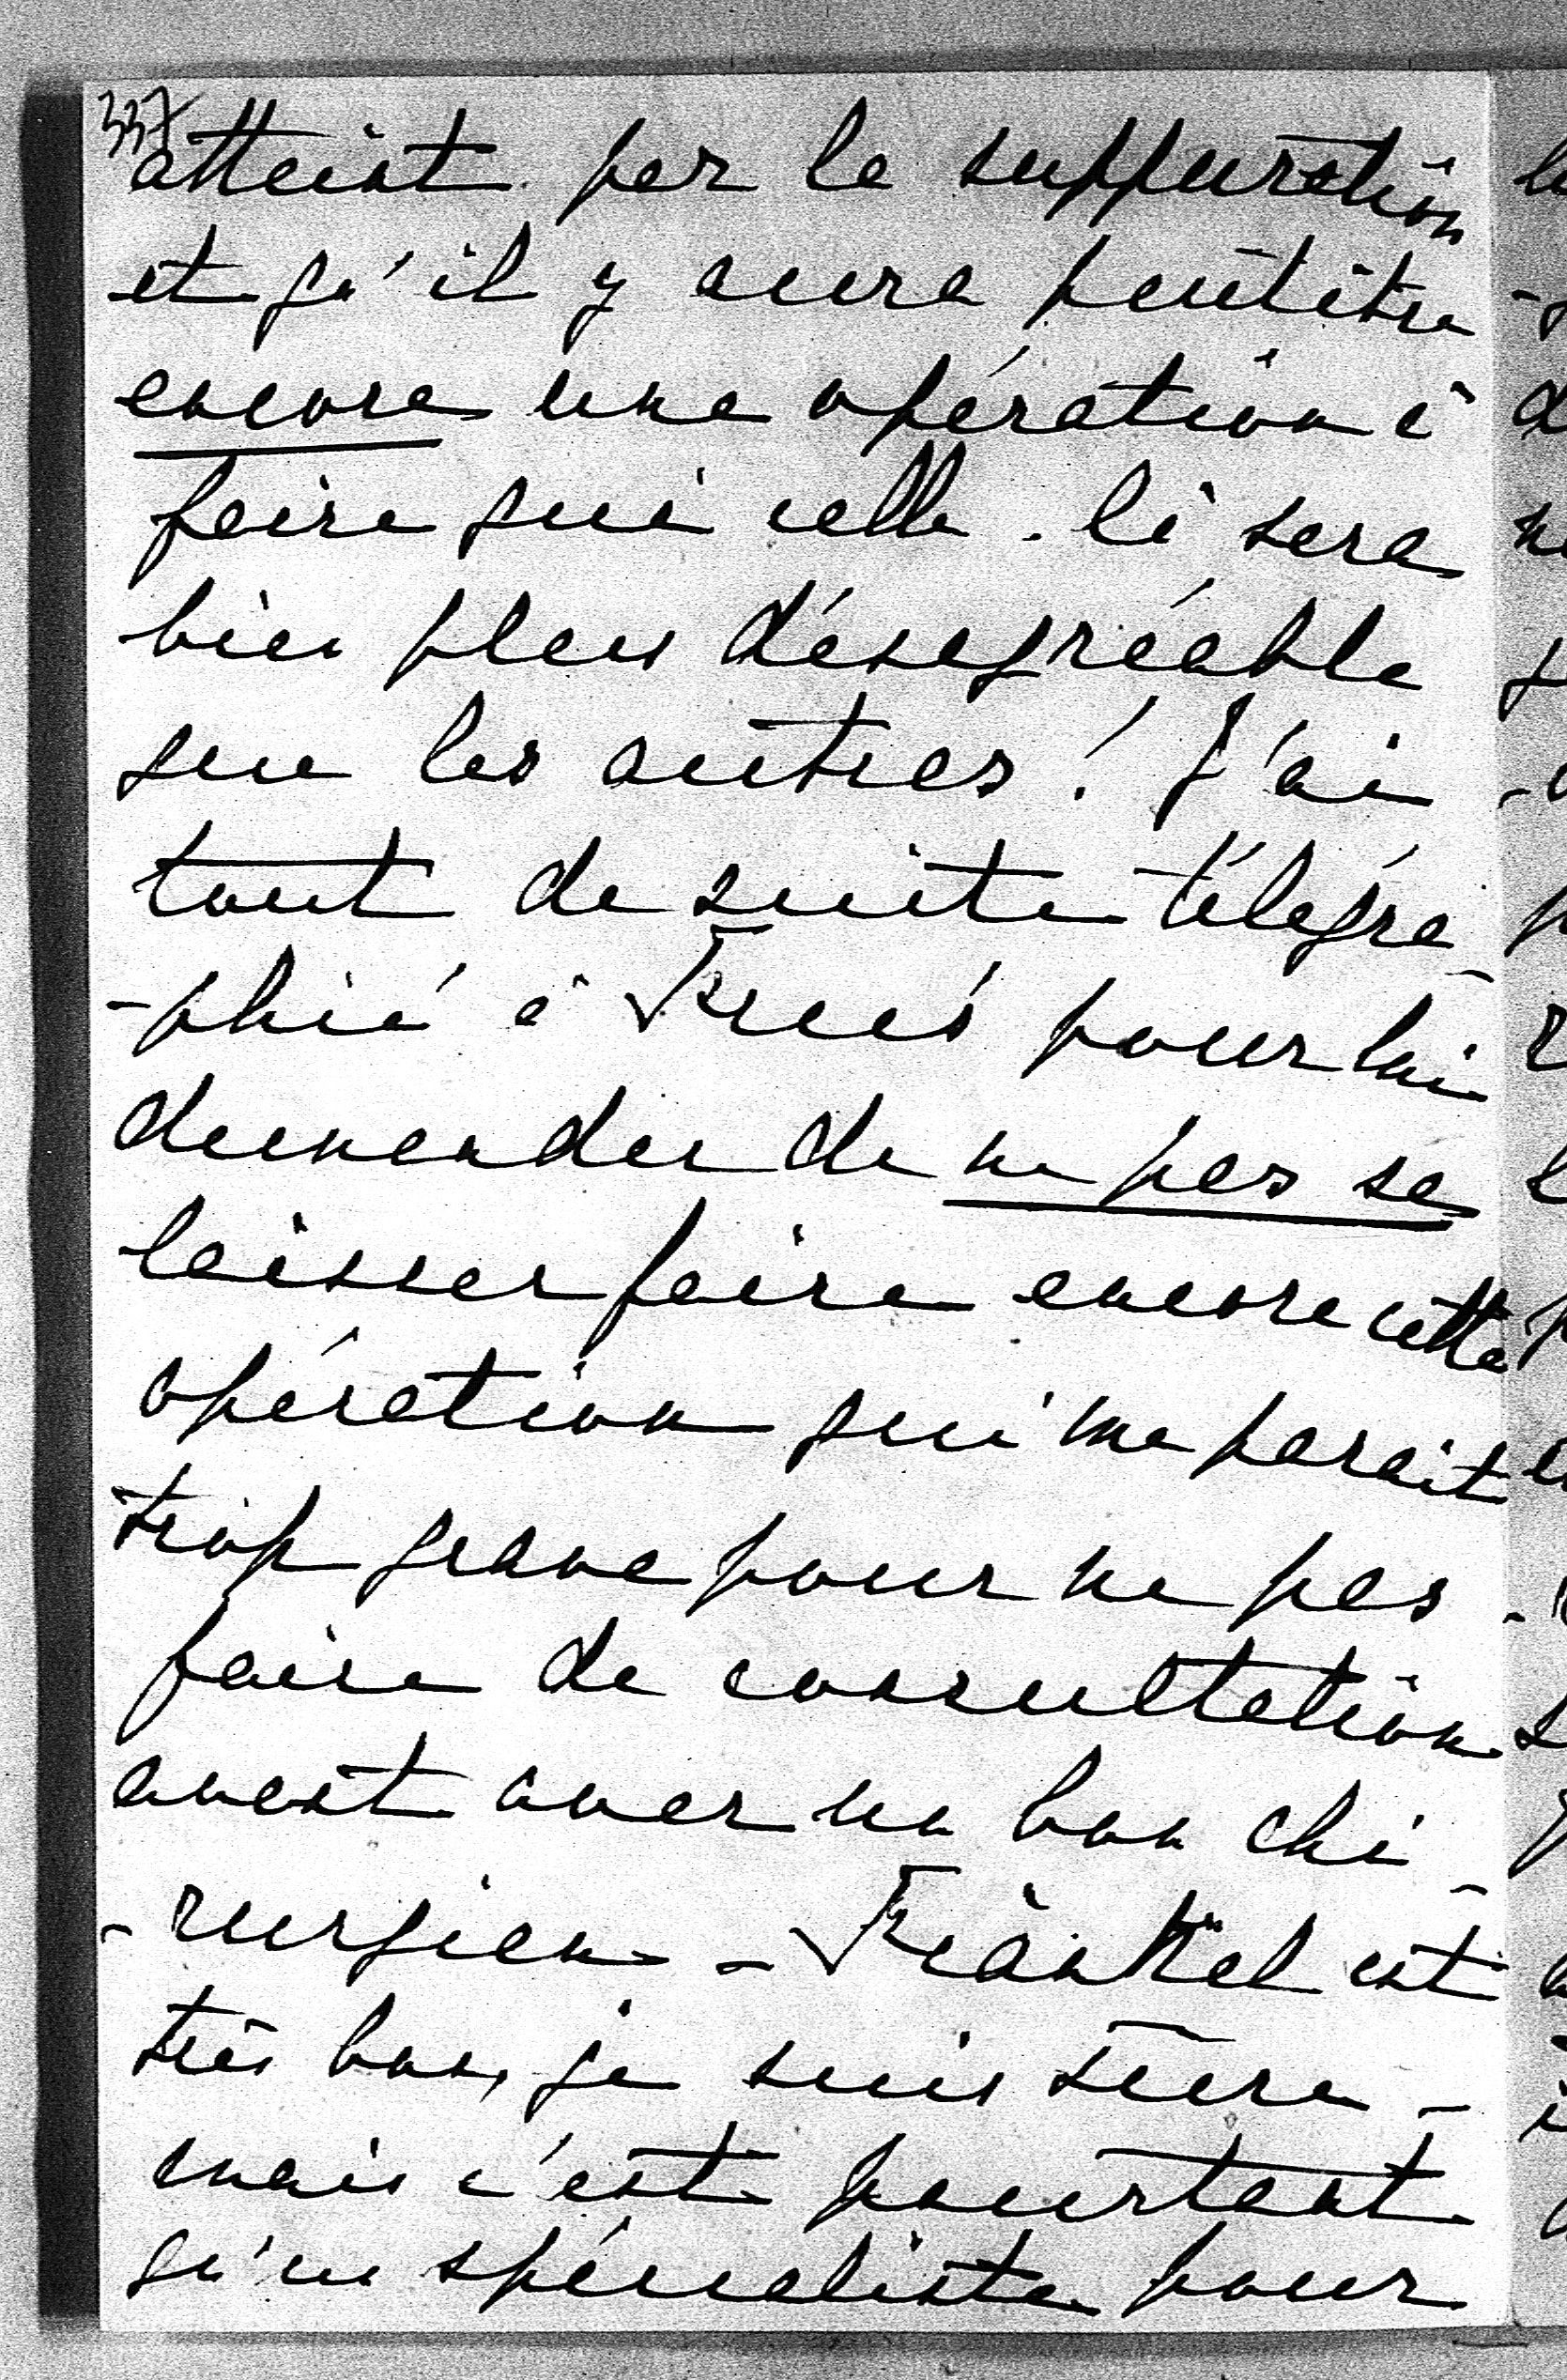 337
atteint par la suppuration
et qu'il y aura peutêtre
encore une opération à
faire qui celle-là sera
bien plus désagréable
que les autres! J'ai
tout de suite télégra-
-phié à pour lui
demander de ne pas se
laisser faire encore cette
opération qui me parait
trop grave pour ne pas
faire de consultation
avant avec un bon chi-
-rurgien - Fränkel est
très bon, je suis sûre -
mais c'est pourtant
qu'un spécialiste pour